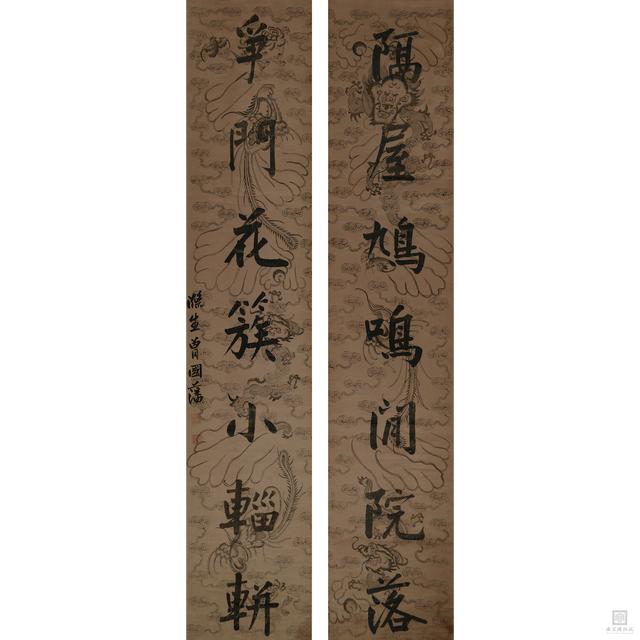 隔屋鳩鳴閒院落
爭門花簇小輜軿
滌生曾國藩